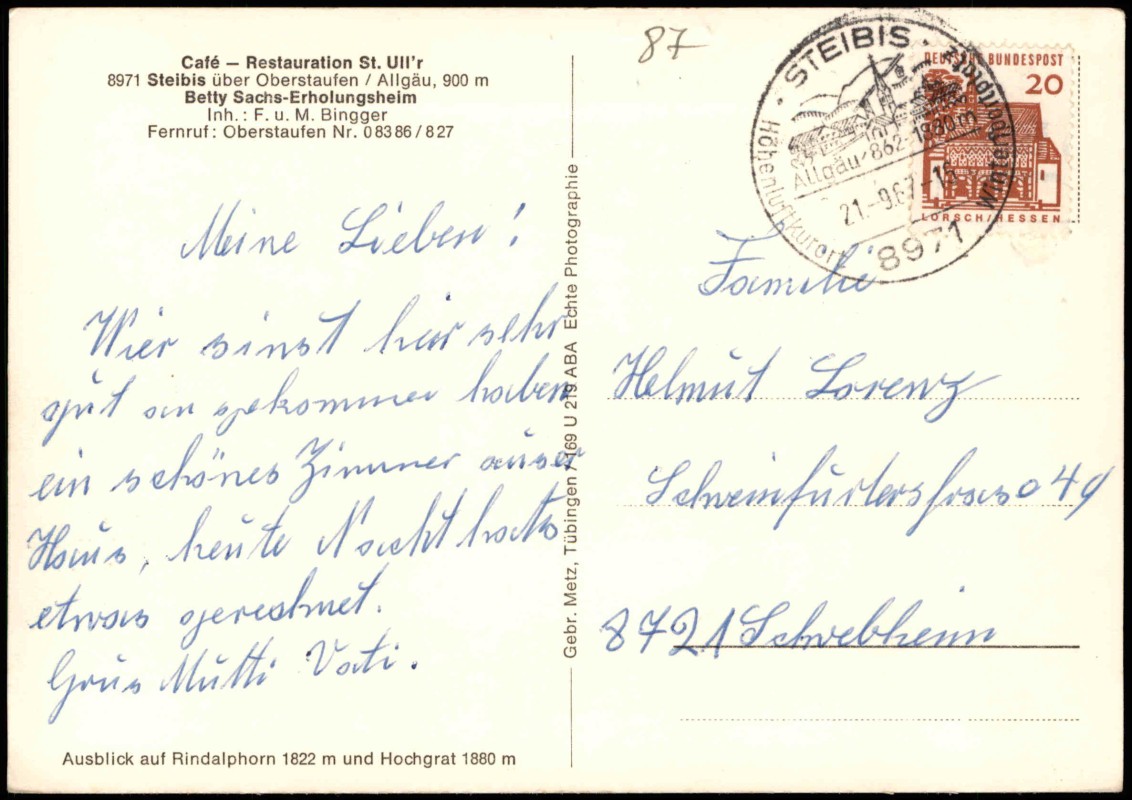 Café – Restauration St. Ull'r
8971 Steibis über Oberstaufen / Allgäu, 900 m
Betty Sachs-Erholungsheim
Inh.: F. u. M. Bingger
Fernruf: Oberstaufen Nr. 08386/827
Meine Lieben!
Wier sinst hier sehr
gut an gekommen haben
ein schönes Zimmer auser
Haus, heute Nacht hats
etwas gerechnet.
Grus Mutti Vati.
Ausblick auf Rindalphorn 1822 m und Hochgrat 1880 m
Gebr. Metz, Tübingen 7169 U 219 ABA Echte Photographie
87
STEIBIS
Höhenluftkurort
Wintersportplatz
Allgäu/862-1900m
21.-9.67-16
8971
DEUTSCHE BUNDESPOST
20
LORSCH/HESSEN
Familie
Helmut Lorenz
49
8721 Schwebheim